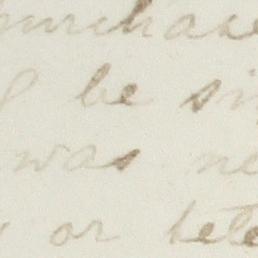 purchase
be si
was ne
or bet